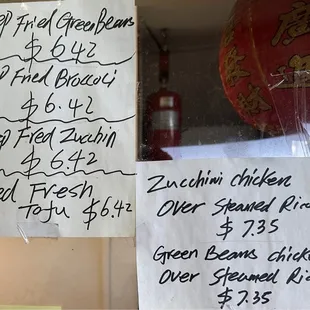 Fried Green Beans
$6.42
Fried Broccoli
$6.42
Fred Zucchin
$6.42
Fresh
Tofu $6.42
Zucchini chicken
Over Steamed Ric
$7.35
Green Beans chick
Over Steamed Ric
$7.35